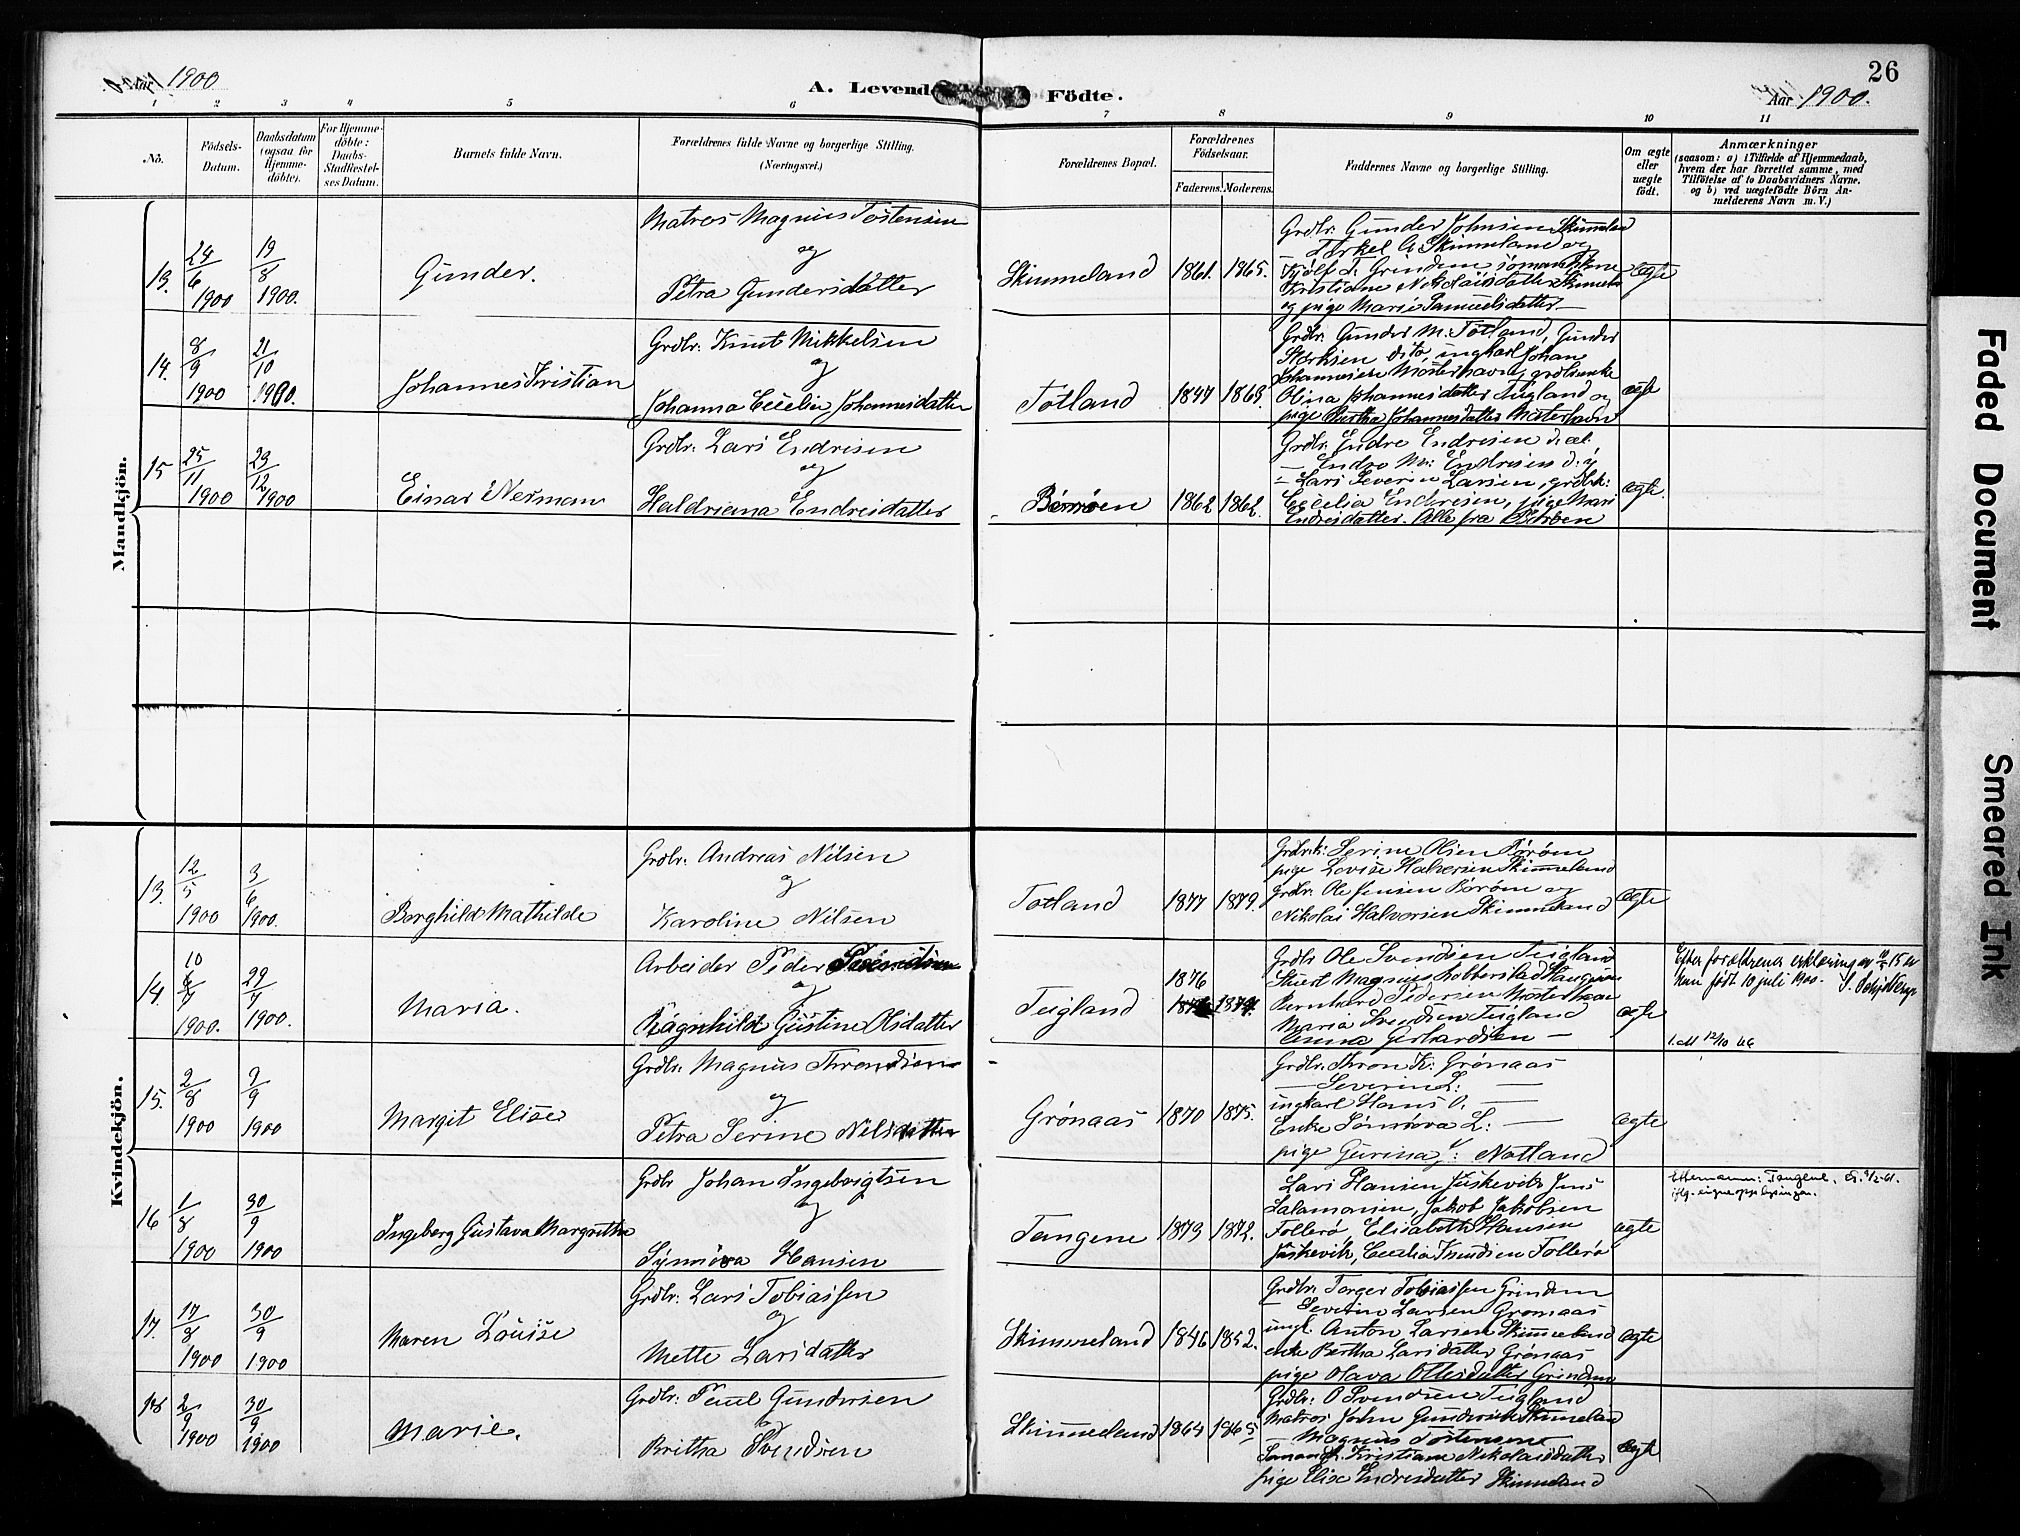 26
1900
A. Levende Födte.
Aar 1900.
1 2 3 4 5 6 7 8 9 10 11
No.
Födsels-Datum.
Daabsdatum (ogsaa for Hjemmedöbte).
For Hjemmedöbte: Daabs-Stadfæstelses Datum.
Barnets fulde Navn.
Forældrenes fulde Navne og borgerlige Stilling. (Næringsvei.)
Forældrenes Bopæl.
Forældrenes Födselsaar.
Faderens. Moderens.
Faddernes Navne og borgerlige Stilling.
Om ægte eller uægte födt.
Anmærkninger
(saasom: a) i Tilfælde af Hjemmedaab,
hvem der har forrettet samme, med
Tilföielse af to Daabsvidners Navne.
og b) ved uægtefödte Börn An-
melderens Navn m. V.)
Mandkjön.
13.
6
1900
19
8
1900.
Gunder.
Matros Magnus Tostensen
og
Petra Gundersdatter
Skimmeland
1861. 1865.
Grdbr. Gunder Johnsen Skimmeland
Torkel G. Skimmeland og
Kristiane Nikolaisdatter Skimmeland
og pige Marie Samuelsdatter —
ægte
14.
8
9
1900
21
10
1900.
Johannes Kristian
Grdbr. Knut Mikkelsen
og
Johanna Cecelie Johannesdatter
Totland
1847 1863.
Grdbr. Gunder M. Totland, Gunder
dito, ungkarl Johan
Johannesen Mosterhavn, grdbrenke
Olina Johannesdatter Tegland og
pige Bertha Johannesdatter Mosterhavn
ægte
15
25
11
1900
23
12
1900
Einar Nerman
Grdbr. Lars Endresen
og
Haldriana Endresdatter
Børøen
1862 1862.
Grdbr. Endre Endresen d. æl.
— Endre M. Endresen d. y.
— Lars Severin Larsen, grdbrk:
Cecelia Endresen, pige Mari
Endresdatter. Alle fra Børøen
ægte.
Kvindekjön.
13.
12
5
1900
3
6
1900.
Borghild Mathilde
Grdbr. Andreas Nilsen
og
Karoline Nilsen
Totland
1877 1879.
Grdbrk: Serine Olsen Børøen
pige Lovise Halvorsen Skimmeland
grdbr. Ole Jensen Børøen og
Nikolai Halvorsen Skimmeland
ægte
14.
10
7
1900.
29
7
1900.
Maria.
Arbeider Peder
og
Ragnhild Gustine Olsdatter
Teigland
1876
Grdbr Ole Svendsen Teigland
Bernhard Pedersen Mosterhavn
Maria Svendsen Teigland
Anna Gerhardsen —
ægte
Efter forældrenes erklæring av
hun født 10 juli 1900.
15.
2
8
1900
9
9
1900
Margit Elise
Grdbr. Magnus Thronsen
og
Petra Serine Nilsdatter
Grønaas
1870 1875.
Grdbr. Thron K. Grønaas
— Severin L: —
ungkarl Hans O. —
Enke Sønnøva L: —
pige Gurina J: Notland
ægte
16
1
8
1900
30
9
1900
Ingeborg Gustava Margretha
Grdbr Johan Ingebrigtsen
og
Synnøva Hansen
Tangene
1873 1872.
Lars Hansen Juskevik, Jens
Salamonsen, Jakob Jakobsen
Follerø, Elisabeth Hansen
Juskevik, Cecelia Knudsen Follerø
ægte
Etternavn: Tangene.
iflg. egne opplysninger.
17.
17
8
1900
30
9
1900
Maren Louise
Grdbr. Lars Tobiassen
og
Mette Larsdatter
Skimmeland
1846 1852.
Grdbr. Torger Tobiassen Grindem
— Severin Larsen Grønaas
ungk. Anton Larsen Skimmeland
enke Bertha Larsdatter Grønaas
pige Olava Ottesdatter Grindem
ægte
18
2
9
1900
30
9
1900
Marie.
Grdbr. Paul Gundersen
og
Britha Svendsen
Skimmeland
1864 1865
Grdbr. O Svendsen Teigland
Matros John Gundersen Skimmeland
Magnus Tostensen
Kristiane Nikolaisdatter
pige Elise Endresdatter Skimmeland
ægte
Faded Document
Smeared Ink